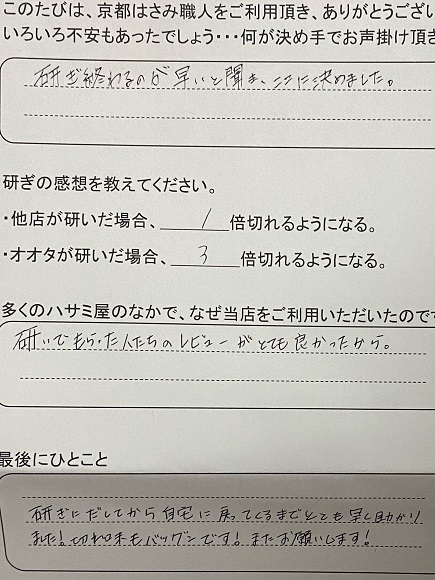 このたびは、京都はさみ職人をご利用頂き、ありがとうござい
いろいろ不安もあったでしょう・・・何が決め手でお声掛け頂き
研ぎ終わるのが早いと聞き、ここに決めました。
研ぎの感想を教えてください。
・他店が研いだ場合、1倍切れるようになる。
・オオタが研いだ場合、3倍切れるようになる。
多くのハサミ屋のなかで、なぜ当店をご利用いただいたので
研いでもらった人たちのレビューがとても良かったから。
最後にひとこと
研ぎにだしてから自宅に戻ってくるまでとても早く助かり
ました!切れ味もバツグンです!またお願いします!